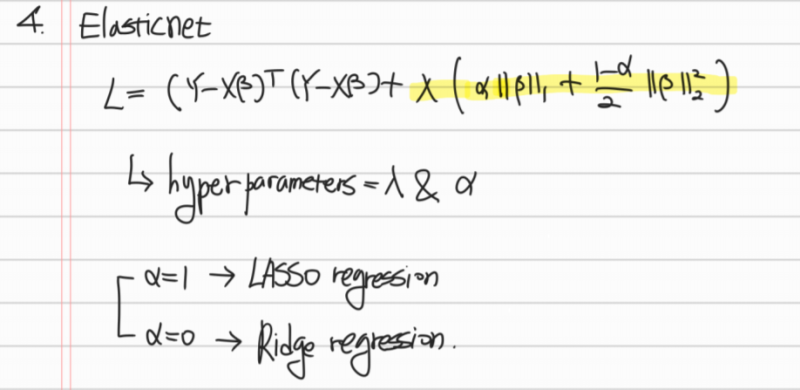 4. Elasticnet
L = (Y-Xβ)ᵀ(Y-Xβ) + λ(α||β||₁ + (1-α)/2 ||β||₂²)
↳ hyperparameters = λ & α
α=1 → LASSO regression
α=0 → Ridge regression.